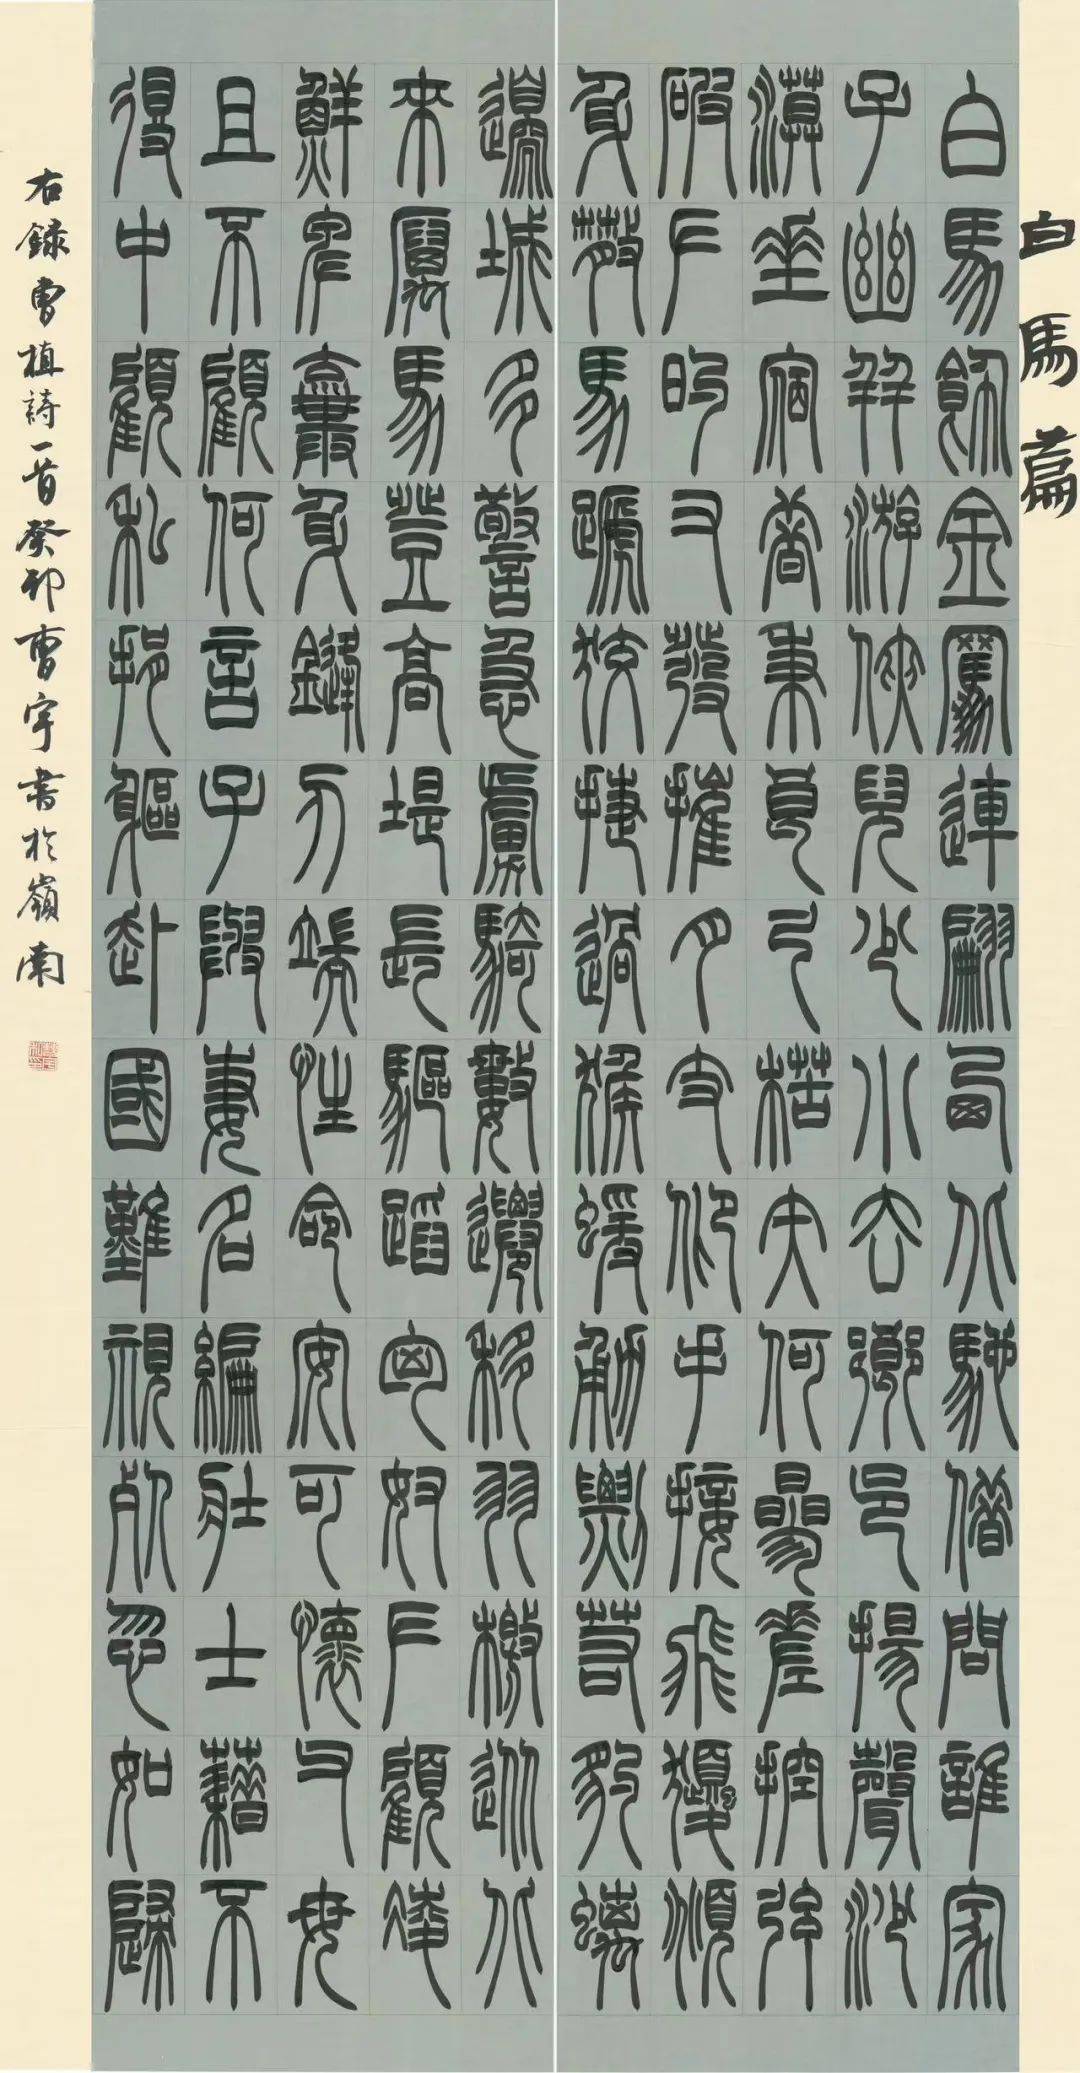 白馬篇
白馬飾金羈連翩西北馳借問誰家
子幽并游俠兒少小去鄉邑揚聲沙
漠垂宿昔秉良弓楛矢何參差控弦
破左的右發摧月支仰手接飛猱俯
身散馬蹄狡捷過猴猨勇剽若豹螭
邊城多警急虜騎數遷移羽檄從北
來厲馬登高堤長驅蹈匈奴左顧凌
鮮卑棄身鋒刃端性命安可懷父母
且不顧何言子與妻名編壯士籍不
得中顧私捐軀赴國難視死忽如歸
右錄曹植詩一首癸卯曹宇書於嶺南